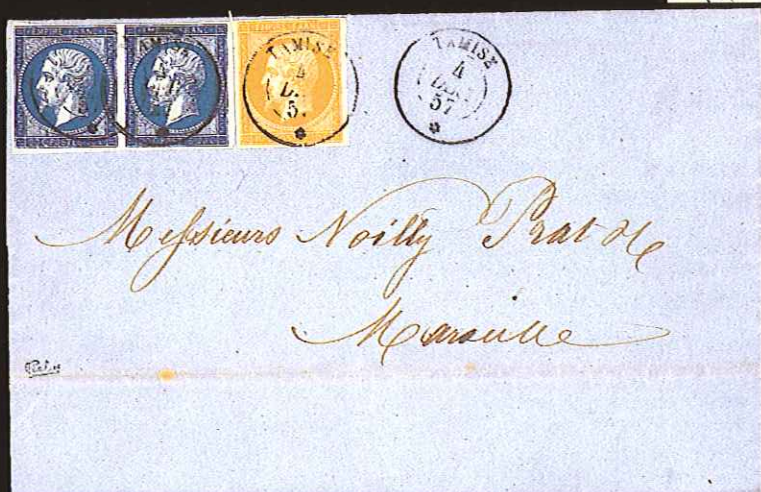 EMPIRE FRANC
TAMISE
4
57
TAMISE
4
DEC
57
Messieurs Noilly Prat &c
Marseille